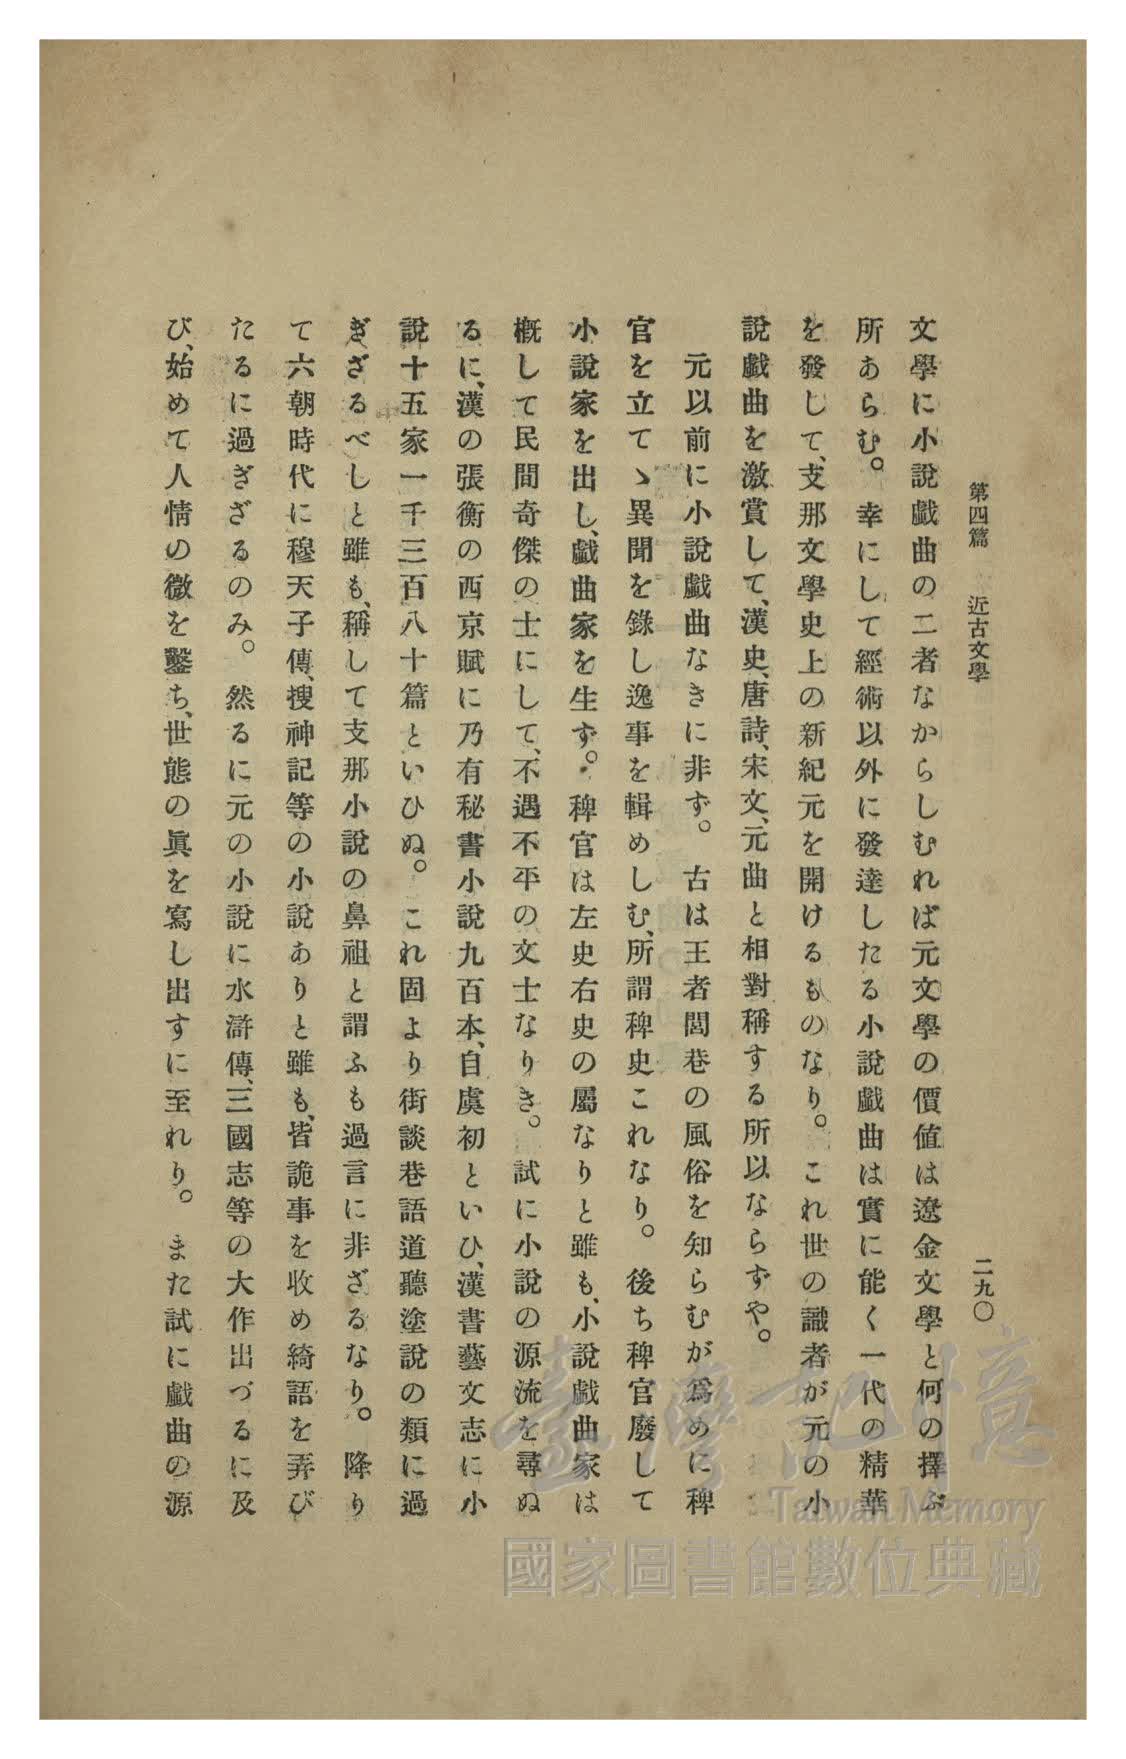 第四篇　近古文學
二九〇
文學に小說戲曲の二者なからしむれば元文學の價値は遼金文學と何の擇ぶ
所あらむ。幸にして經術以外に發達したる小說戲曲は實に能く一代の精華
を發して、支那文學史上の新紀元を開けるものなり。これ世の識者が元の小
說戲曲を激賞して、漢史、唐詩、宋文、元曲と相對稱する所以ならずや。
元以前に小說戲曲なきに非ず。古は王者閭巷の風俗を知らむが爲めに稗
官を立てゝ異聞を錄し逸事を輯めしむ、所謂稗史これなり。後ち稗官廢して
小說家を出し、戲曲家を生ず。稗官は左史右史の屬なりと雖も、小說戲曲家は
槪して民間奇傑の士にして、不遇不平の文士なりき。試に小說の源流を尋ぬ
るに、漢の張衡の西京賦に乃有秘書小說九百本、自虞初といひ、漢書藝文志に小
說十五家一千三百八十篇といひぬ。これ固より街談巷語道聽塗說の類に過
ぎざるべしと雖も、稱して支那小說の鼻祖と謂ふも過言に非ざるなり。降り
て六朝時代に穆天子傳、搜神記等の小說ありと雖も、皆詭事を收め綺語を弄び
たるに過ぎざるのみ。然るに元の小說に水滸傳、三國志等の大作出づるに及
び、始めて人情の微を鑿ち、世態の眞を寫し出すに至れり。また試に戲曲の源
臺灣記憶
Taiwan Memory
國家圖書館數位典藏